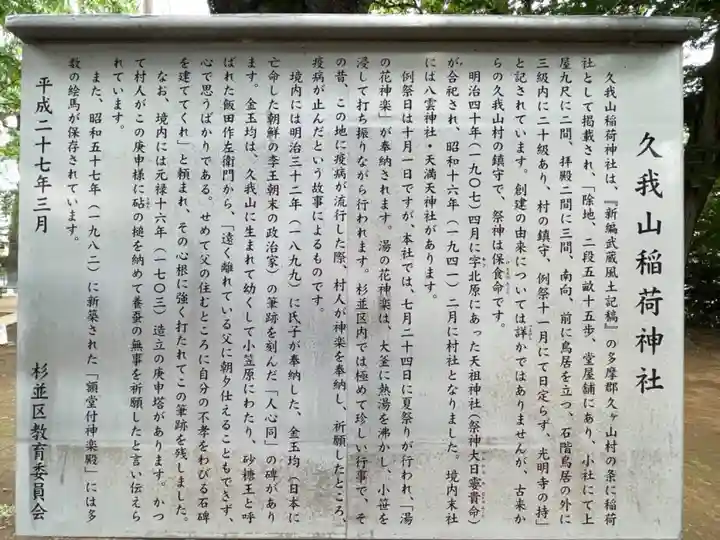 久我山稲荷神社
久我山稲荷神社は、『新編武蔵風土記稿』の多摩郡久ヶ山村の条に稲荷
社として掲載され、「除地、二段五畝十五歩、堂屋舗にあり、小社にて上
屋九尺に二間、拝殿二間に三間、南向、前に鳥居を立つ、石階鳥居の外に
三級内に二十級あり、村の鎮守、例祭十一月にて日定らず、光明寺の持」
と記されています。創建の由来については詳かではありませんが、古来か
らの久我山村の鎮守で、祭神は保食命です。
明治四十年(一九〇七)四月に字北原にあった天祖神社(祭神大日孁貴命)
が合祀され、昭和十六年(一九四一)二月に村社となりました。境内末社
には八雲神社・天満天神社があります。
例祭日は十月一日ですが、本社では、七月二十四日に夏祭りが行われ、「湯
の花神楽」が奉納されます。湯の花神楽は、大釜に熱湯を沸かし、小笹を
浸して打ち振りながら行われます。杉並区内では極めて珍しい行事で、そ
の昔、この地に疫病が流行した際、村人が神楽を奉納し、祈願したところ、
疫病が止んだという故事によるものです。
境内には明治三十二年(一八九九)に氏子が奉納した、金玉均(日本に
亡命した朝鮮の李王朝末の政治家)の筆跡を刻んだ「人心同」の碑があり
ます。金玉均は、久我山に生まれて幼くして小笠原にわたり、砂糖王と呼
ばれた飯田作左衛門から、「遠く離れている父に朝夕仕えることもできず、
心で思うばかりである。せめて父の住むところに自分の不孝をわびる石碑
を建ててくれ」と頼まれ、その心根に強く打たれてこの筆跡を残しました。
なお、境内には元禄十六年(一七〇三)造立の庚申塔があります。かつ
て村人がこの庚申様に砧の槌を納めて養蚕の無事を祈願したと言い伝えら
れています。
また、昭和五十七年(一九八二)に新築された「額堂付神楽殿」には多
数の絵馬が保存されています。
平成二十七年三月
杉並区教育委員会